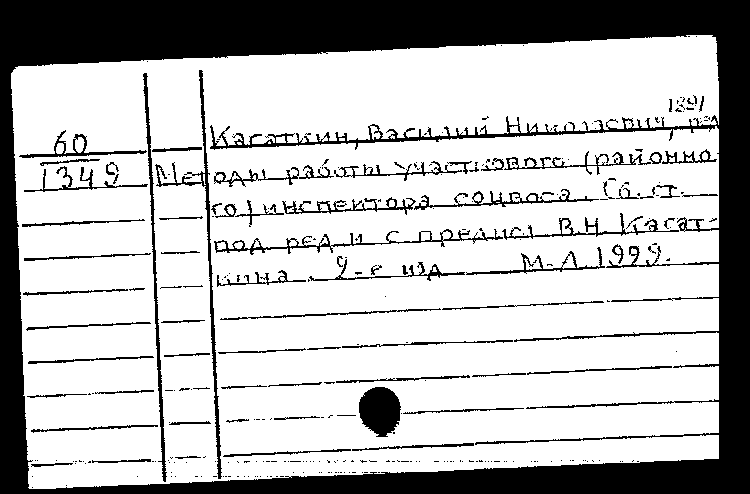 1891
60 Касаткин, Василий Николаевич, ред
1349 Методы работы участкового (районно
го) инспектора соцвоса. Сб. ст.
под ред и с предисл В.Н. Касат-
кина. 2-е изд М-Л 1929.